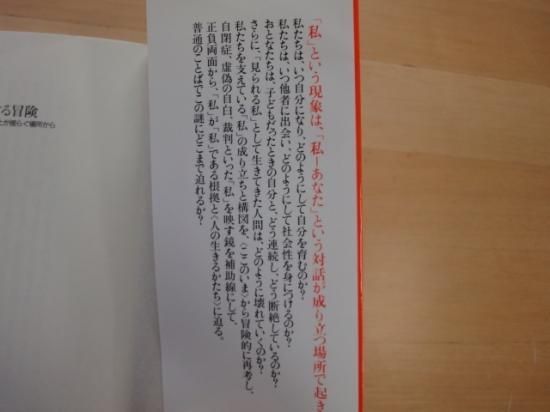 「私」という現象は、「私–あなた」という対話が成り立つ場所で起き
私たちは、いつ自分になり、どのようにして自分を育むのか?
私たちは、いつ他者に出会い、どのようにして社会性を身につけるのか?
おとなたちは、子どもだったときの自分と、どう連続し、どう断絶しているのか?
さらに、「見られる私」として生きてきた人間は、どのように壊れていくのか?
私たちを支えている「私」の成り立ちと構図を、〈ここのいま〉から冒険的に再考し、
自閉症、虚偽の自白、裁判といった「私」を映す鏡を補助線にして、
正負両面から、「私」が「私」である根拠と〈人の生きるかたち〉に迫る。
普通のことばでこの謎にどこまで迫れるか?
る冒険
が揺らぐ場所から